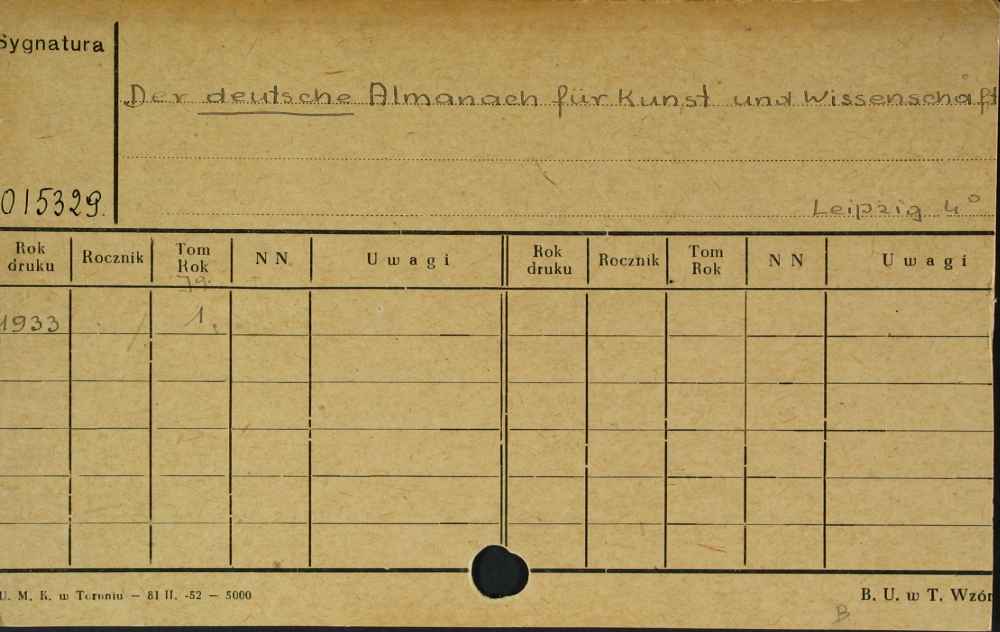 Sygnatura
Der deutsche Almanach für Kunst und Wissenschaft
015329.
Leipzig 4°
Rok druku Rocznik Tom Rok N N. U w a g i Rok druku Rocznik Tom Rok N N U w a g i
Jg.
1933 / 1.
U. M. K. w Toruniu — 81 II. -52 — 5000
B. U. w T. Wzór
B